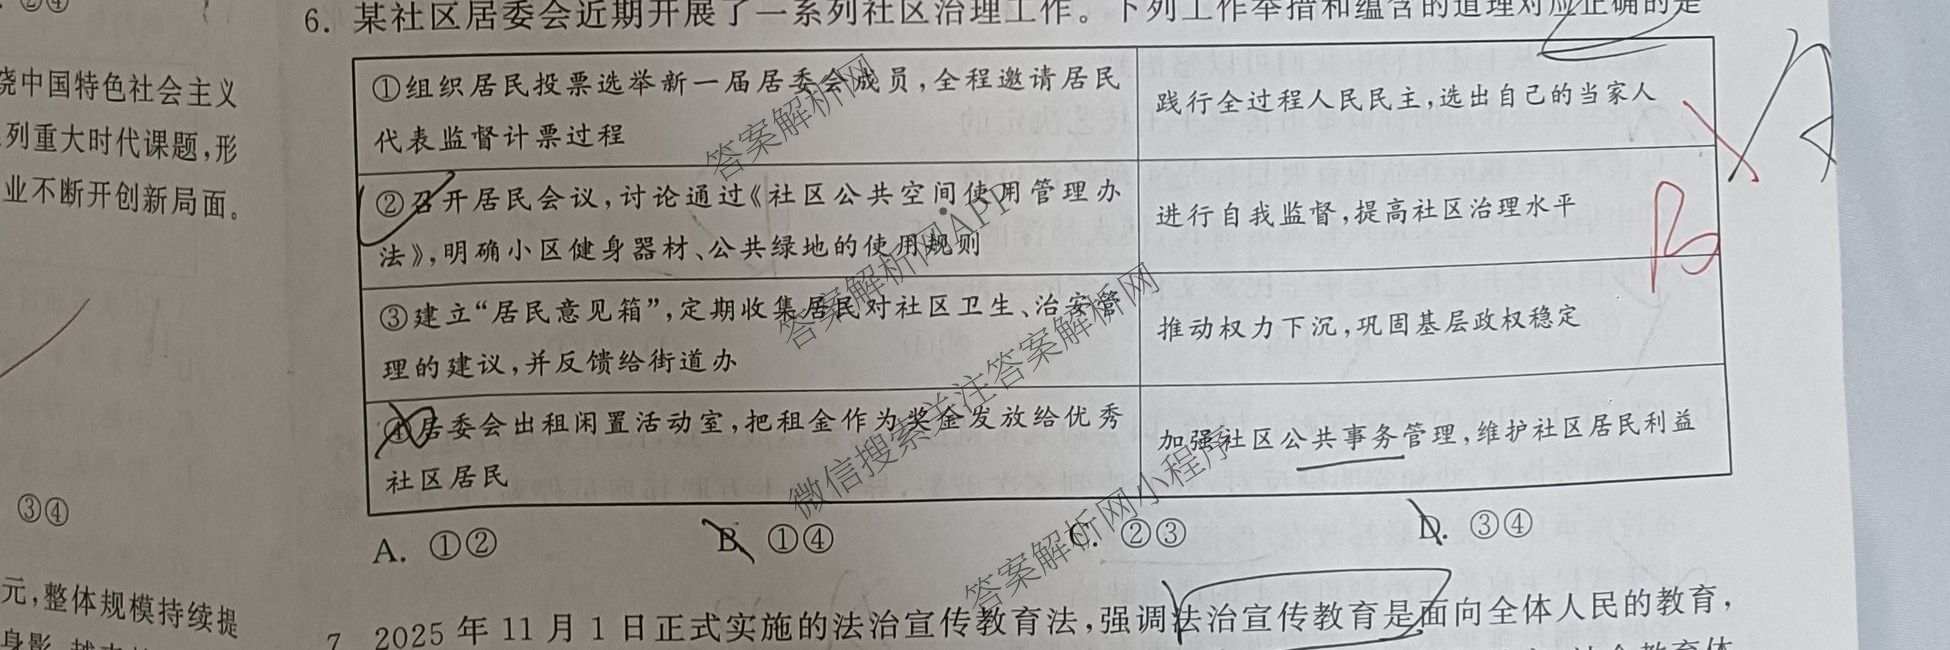 ②④
6. 某社区居委会近期开展了一系列社区治理工作。下列工作举措和蕴含的道理对应正确的是
绕中国特色社会主义
列重大时代课题,形
业不断开创新局面。
①组织居民投票选举新一届居委会成员,全程邀请居民
代表监督计票过程
践行全过程人民民主,选出自己的当家人
②召开居民会议,讨论通过《社区公共空间使用管理办
法》,明确小区健身器材、公共绿地的使用规则
进行自我监督,提高社区治理水平
③建立“居民意见箱”,定期收集居民对社区卫生、治安管
理的建议,并反馈给街道办
推动权力下沉,巩固基层政权稳定
④居委会出租闲置活动室,把租金作为奖金发放给优秀
社区居民
加强社区公共事务管理,维护社区居民利益
A. ①② B. ①④ C. ②③ D. ③④
③④
元,整体规模持续提
7. 2025年11月1日正式实施的法治宣传教育法,强调法治宣传教育是面向全体人民的教育,
A
B
答案解析网
答案解析网APP
微信搜索关注答案解析网
答案解析网小程序